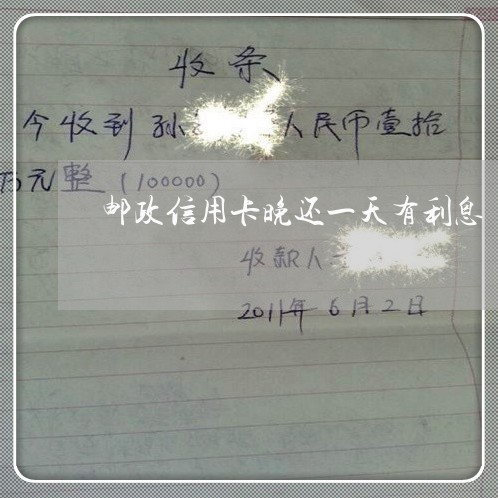 收条
今收到孙 人民币壹拾
万元整(100000)
邮政信用卡晚还一天有利息
收款人
2011年6月2日